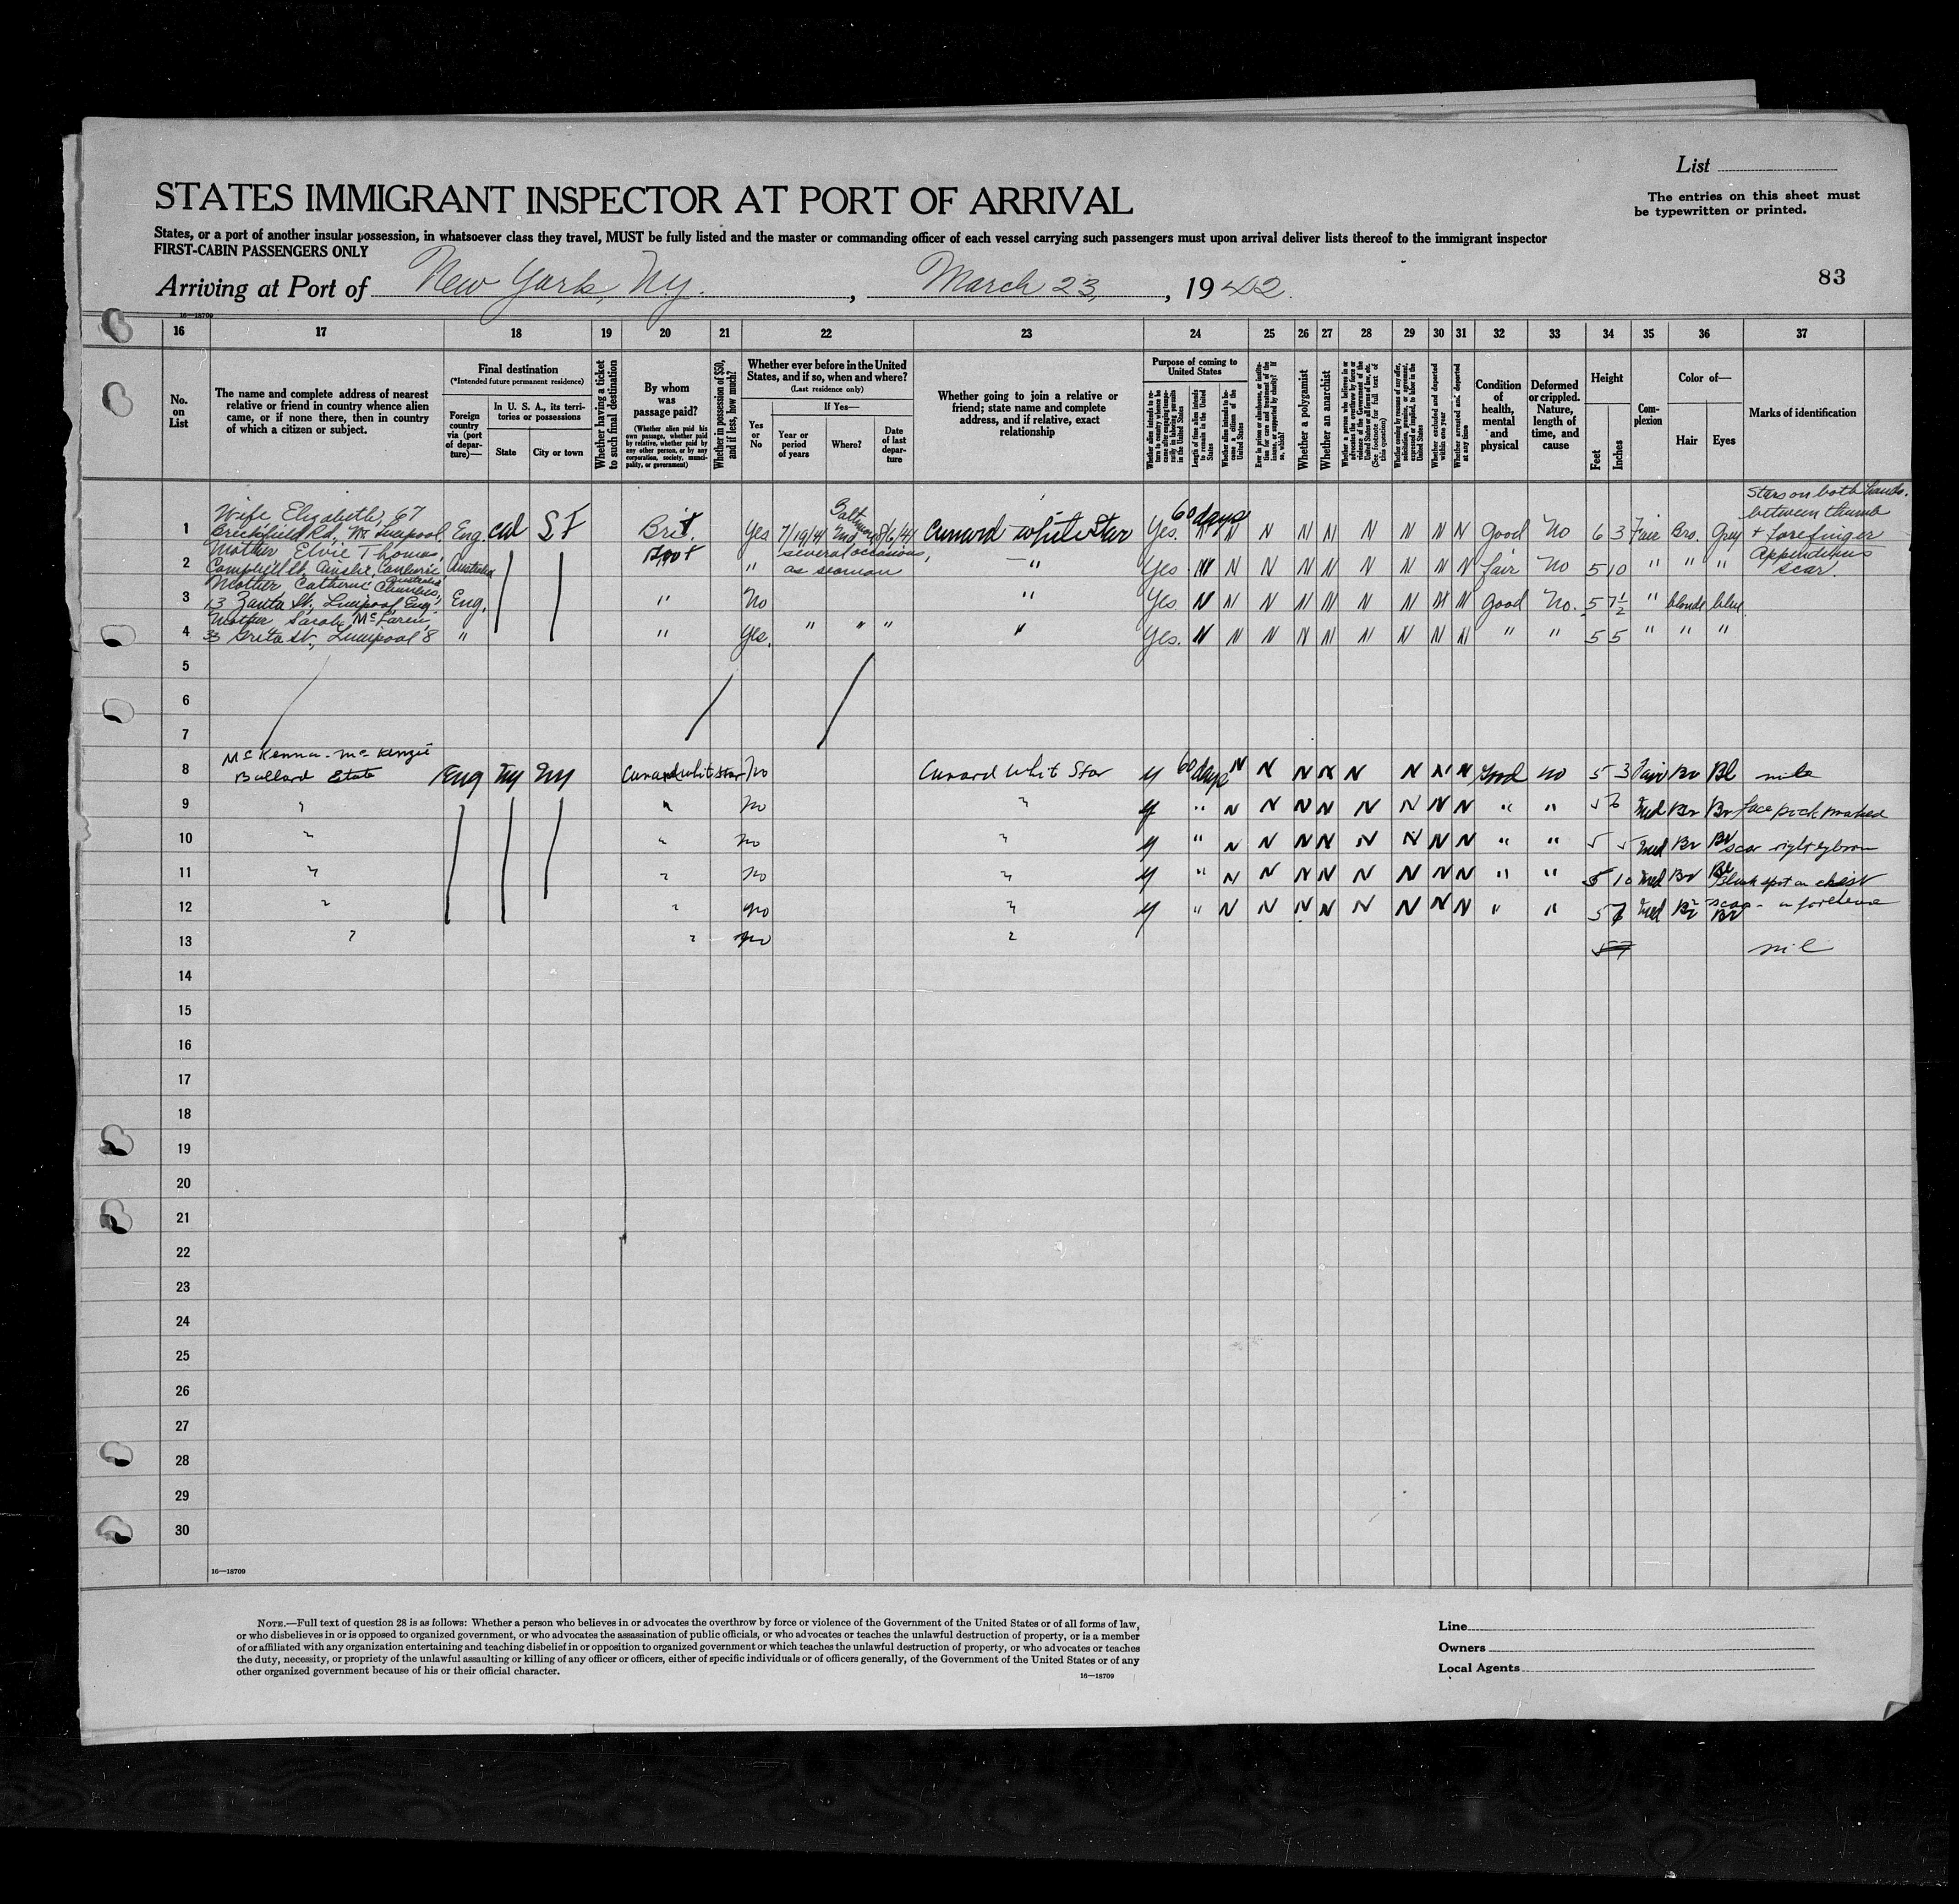 List
The entries on this sheet must
be typewritten or printed.
STATES IMMIGRANT INSPECTOR AT PORT OF ARRIVAL
States, or a port of another insular possession, in whatsoever class they travel, MUST be fully listed and the master or commanding officer of each vessel carrying such passengers must upon arrival deliver lists thereof to the immigrant inspector
FIRST-CABIN PASSENGERS ONLY
83
Arriving at Port of New York, N.Y. , March 23, , 1942.
16—18709
16 17 18 19 20 21 22 23 24 25 26 27 28 29 30 31 32 33 34 35 36 37
No. on List
The name and complete address of nearest
relative or friend in country whence alien
came, or if none there, then in country
of which a citizen or subject.
Final destination
(*Intended future permanent residence)
Foreign country via (port of depar-ture)—
In U. S. A., its terri-
tories or possessions
State City or town
Whether having a ticket
to such final destination
By whom
was
passage paid?
(Whether alien paid his
own passage, whether paid
by relative, whether paid by
any other person, or by any
corporation, society, munici-
pality, or government)
Whether in possession of $50,
and if less, how much?
Whether ever before in the United
States, and if so, when and where?
(Last residence only)
Yes or No
If Yes—
Year or period of years
Where?
Date of last depar-ture
Whether going to join a relative or
friend; state name and complete
address, and if relative, exact
relationship
Purpose of coming to
United States
Whether a polygamist
Whether an anarchist
Whether a person who believes in or
advocates the overthrow by force or
violence of the Government of the
United States or all forms of law, etc.
(See footnote for full text of
this question)
Whether excluded and deported
within one year
Whether arrested and deported
at any time
Condition of health, mental and physical
Deformed or crippled. Nature, length of time, and cause
Height
Feet Inches
Com-plexion
Color of—
Hair Eyes
Marks of identification
1 Wife Elizabeth, 67 Eng. Cal S F Brit. Yes 7/19/41 8/6/41 Cunard-White Star Yes. 60 days N N N N N N N N Good No 6 3 Fair Bro. Grey
between thumb
+ forefinger
2 Mother Elvie Thomas, Australia " several occasions, as seaman " Yes N N N N N N N N N fair No 5 10 " " " Appendicus scar.
3 Mother Catherine Eng. " No " Yes N N N N N N N N N Good No. 5 7½ " blonde blue
4 Mother Sarah McLaren, 33 Greta St., Liverpool 8 " " Yes. " " " " Yes. N N N N N N N N N " " 5 5 " " "
5
6
7
8 McKenna-McKenzie
Bullard Estate Eng NY NY Cunard whit star No Cunard Whit Star y 60 days N N N N N N N N Good no 5 3 Fair Br Bl
9 " " No " y " N N N N N N N N " " 5 6 Med Br Br face pock marked
10 " " No " y " N N N N N N N N " " 5 5 Med Br Br scar right eybrow
11 " " No " y " N N N N N N N N " " 5 10 Med Br Bl Black spot on chest
12 " " No " y " N N N N N N N N " " 5 7 Med Br Br
13 " " No " 57 nil
14
15
16
17
18
19
20
21
22
23
24
25
26
27
28
29
30
16—18709
NOTE.—Full text of question 28 is as follows: Whether a person who believes in or advocates the overthrow by force or violence of the Government of the United States or of all forms of law,
or who disbelieves in or is opposed to organized government, or who advocates the assassination of public officials, or who advocates or teaches the unlawful destruction of property, or is a member
of or affiliated with any organization entertaining and teaching disbelief in or opposition to organized government or which teaches the unlawful destruction of property, or who advocates or teaches
the duty, necessity, or propriety of the unlawful assaulting or killing of any officer or officers, either of specific individuals or of officers generally, of the Government of the United States or of any
other organized government because of his or their official character.
16—18709
Line
Owners
Local Agents